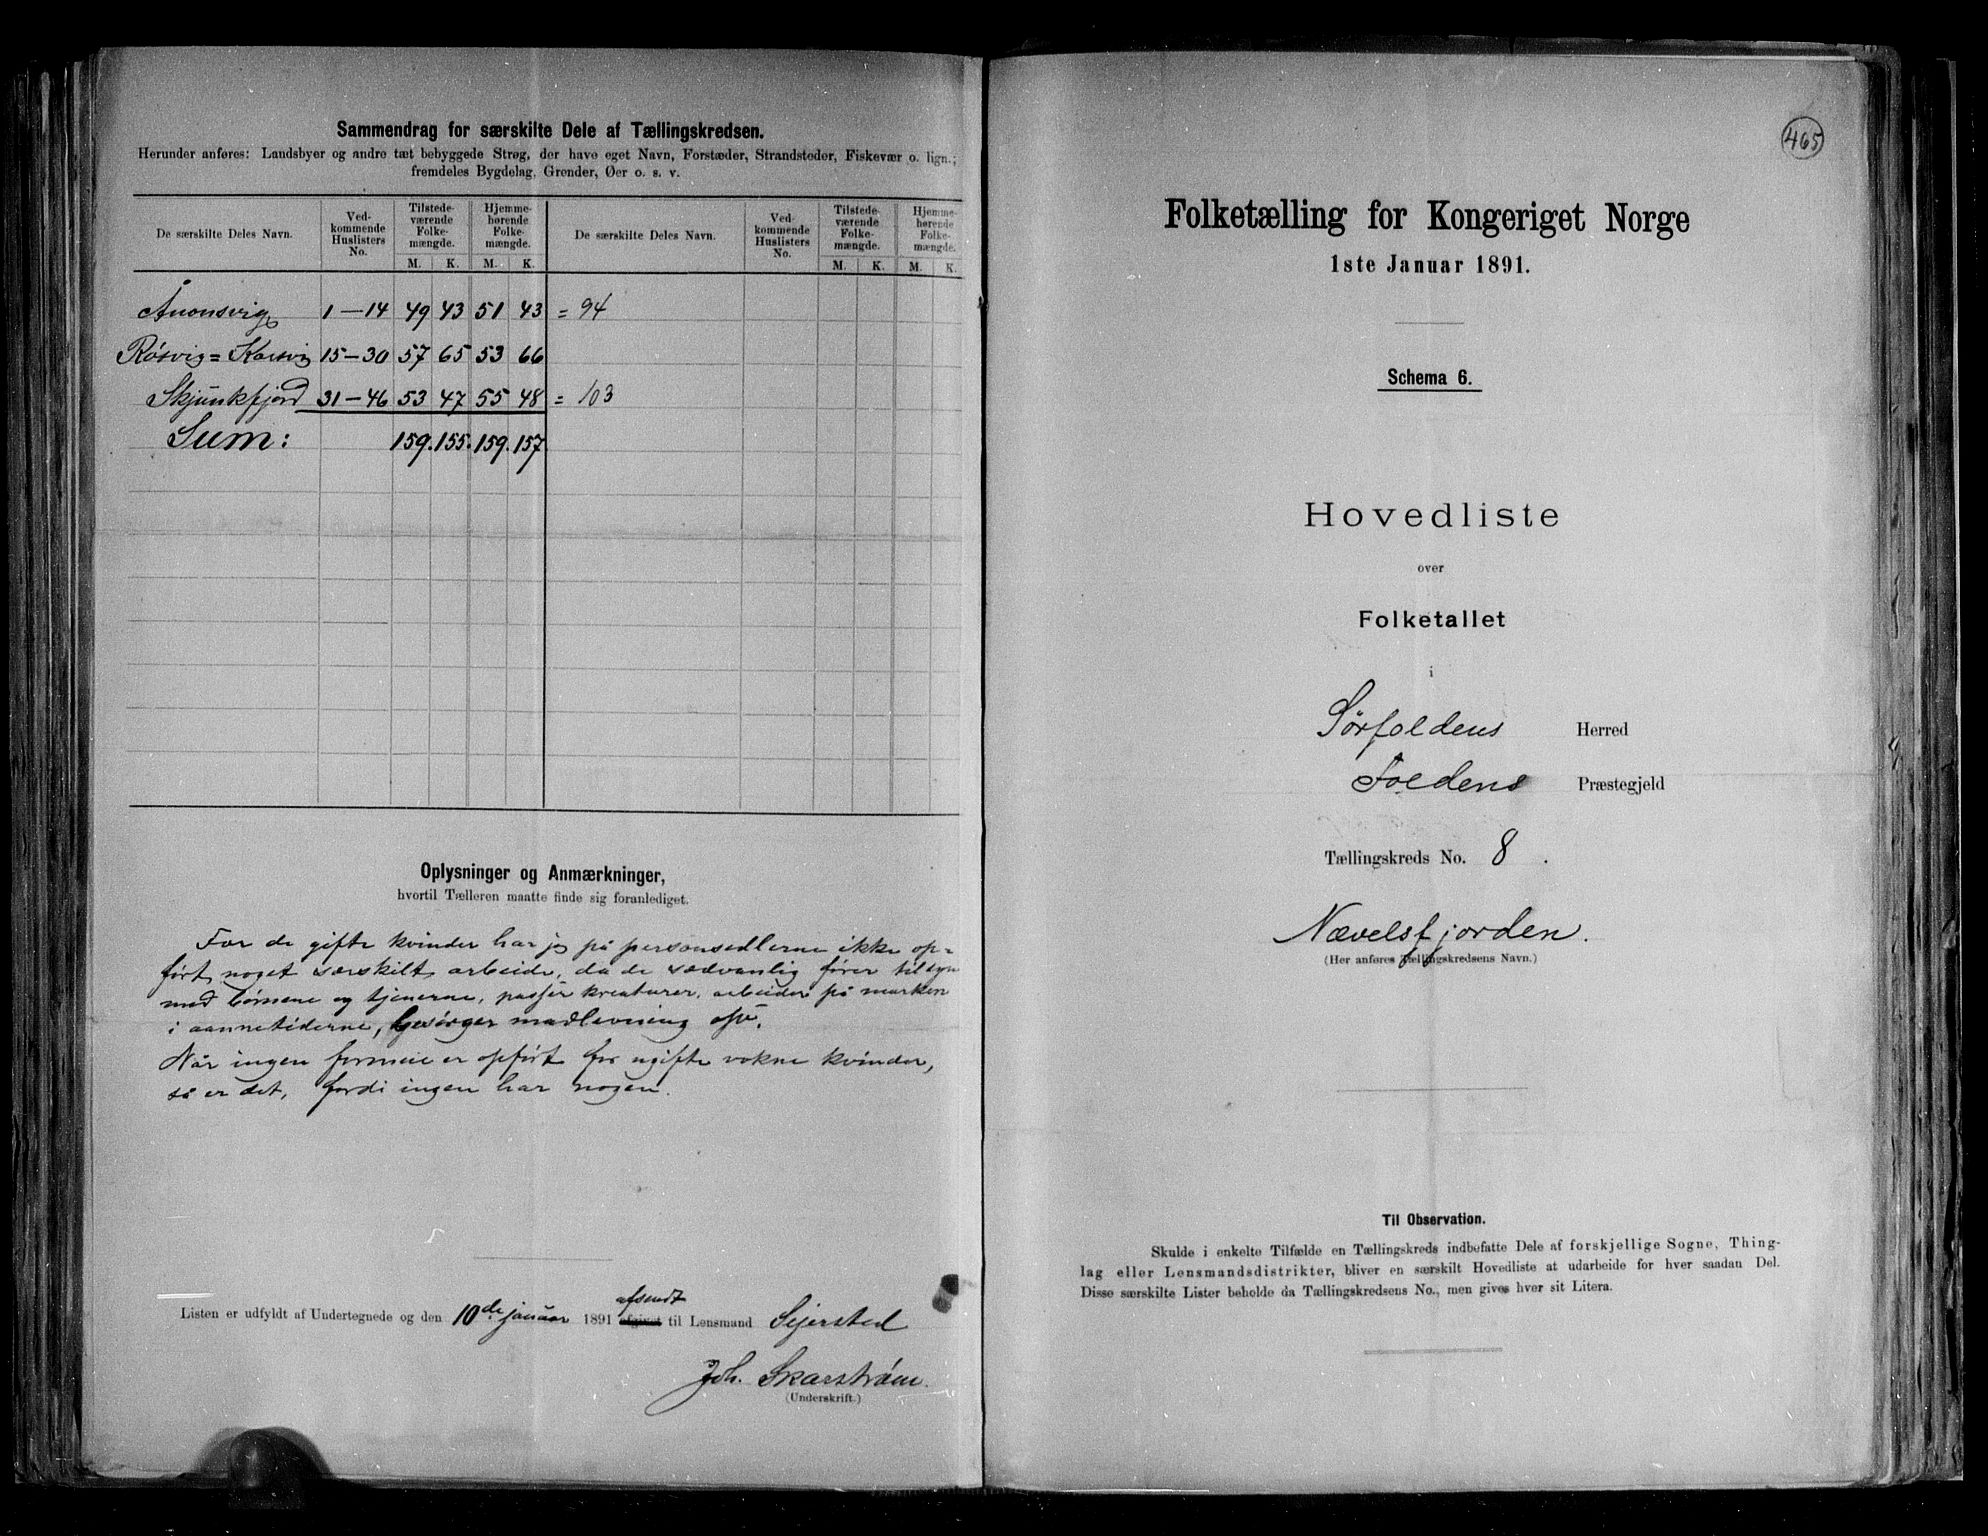 Sammendrag for særskilte Dele af Tællingskredsen.
Herunder anføres: Landsbyer og andre tæt bebyggede Strøg, der have eget Navn, Forstæder, Strandsteder, Fiskevær o. lign.;
fremdeles Bygdelag, Grender, Øer o. s. v.
De særskilte Deles Navn. Ved-kommende Huslisters No. Tilstede-værende Folke-mængde. Hjemme-hørende Folke-mængde. De særskilte Deles Navn. Ved-kommende Huslisters No. Tilstede-værende Folke-mængde. Hjemme-hørende Folke-mængde.
M. K. M. K. M. K. M. K.
1—14 49 43 51 43 = 94
Røsvig= 15—30 57 65 53 66
Skjunkfjord 31—46 53 47 55 48 = 103
Sum: 159. 155. 159. 157.
Oplysninger og Anmærkninger,
hvortil Tælleren maatte finde sig foranlediget.
For de gifte kvinder har jeg på personsedlerne ikke op-
ført noget særskilt arbeide, da de sædvanlig fører tilsyn
med børnene og tjenerne, passer kreaturer, arbeider på marken
i aannetiderne, besørger madlavning osv.
Når ingen formue er opført for ugifte vokne kvinder,
så er det, fordi ingen har nogen.
Listen er udfyldt af Undertegnede og den 10de januar 1891 afsendt afgivet til Lensmand Sejersted
Joh. Skarstrøm.
(Underskrift.)
465
Folketælling for Kongeriget Norge
1ste Januar 1891.
Schema 6.
Hovedliste
over
Folketallet
i
Sørfoldens Herred
Foldens Præstegjeld
Tællingskreds No. 8.
Nævelsfjorden.
(Her anføres Tællingskredsens Navn.)
Til Observation.
Skulde i enkelte Tilfælde en Tællingskreds indbefatte Dele af forskjellige Sogne, Thing-
lag eller Lensmandsdistrikter, bliver en særskilt Hovedliste at udarbeide for hver saadan Del.
Disse særskilte Lister beholde da Tællingskredsens No., men gives hver sit Litera.